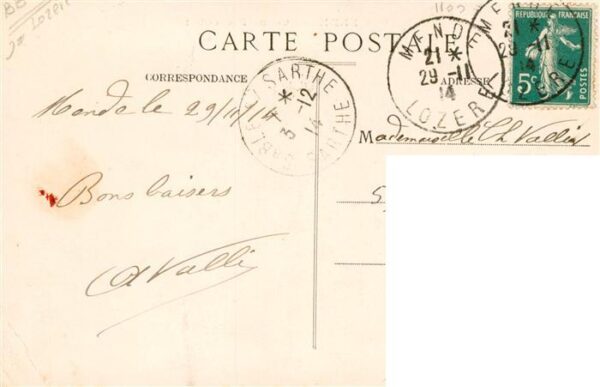 Lozère
CARTE POSTALE
CORRESPONDANCE
ADRESSE
MENDE
21 *
29 -11
14
LOZERE
REPUBLIQUE FRANÇAISE
5c
POSTES
SARTHE
*
3 -12
14
SARTHE
Mende le 29/11/14
Mademoiselle Ch Vallin
Bons baisers